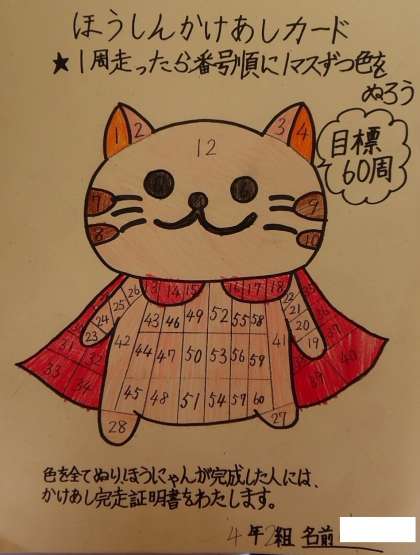 ほうしんかけあしカード
★1周走ったら番号順に1マスずつ色を
ぬろう
目標
60周
1 2 3 4
12
7 9
8 10
26 13 14 15 16 17 18
25 24 23
22 21 20 19
43 46 49 52 55 58
42 44 47 50 53 56 59 41
45 48 51 54 57 60
31 32
33 34
39 40
37
28 27
色を全てぬり、ほうにゃんが完成した人には、
かけあし完走証明書をわたします。
4年2組 名前